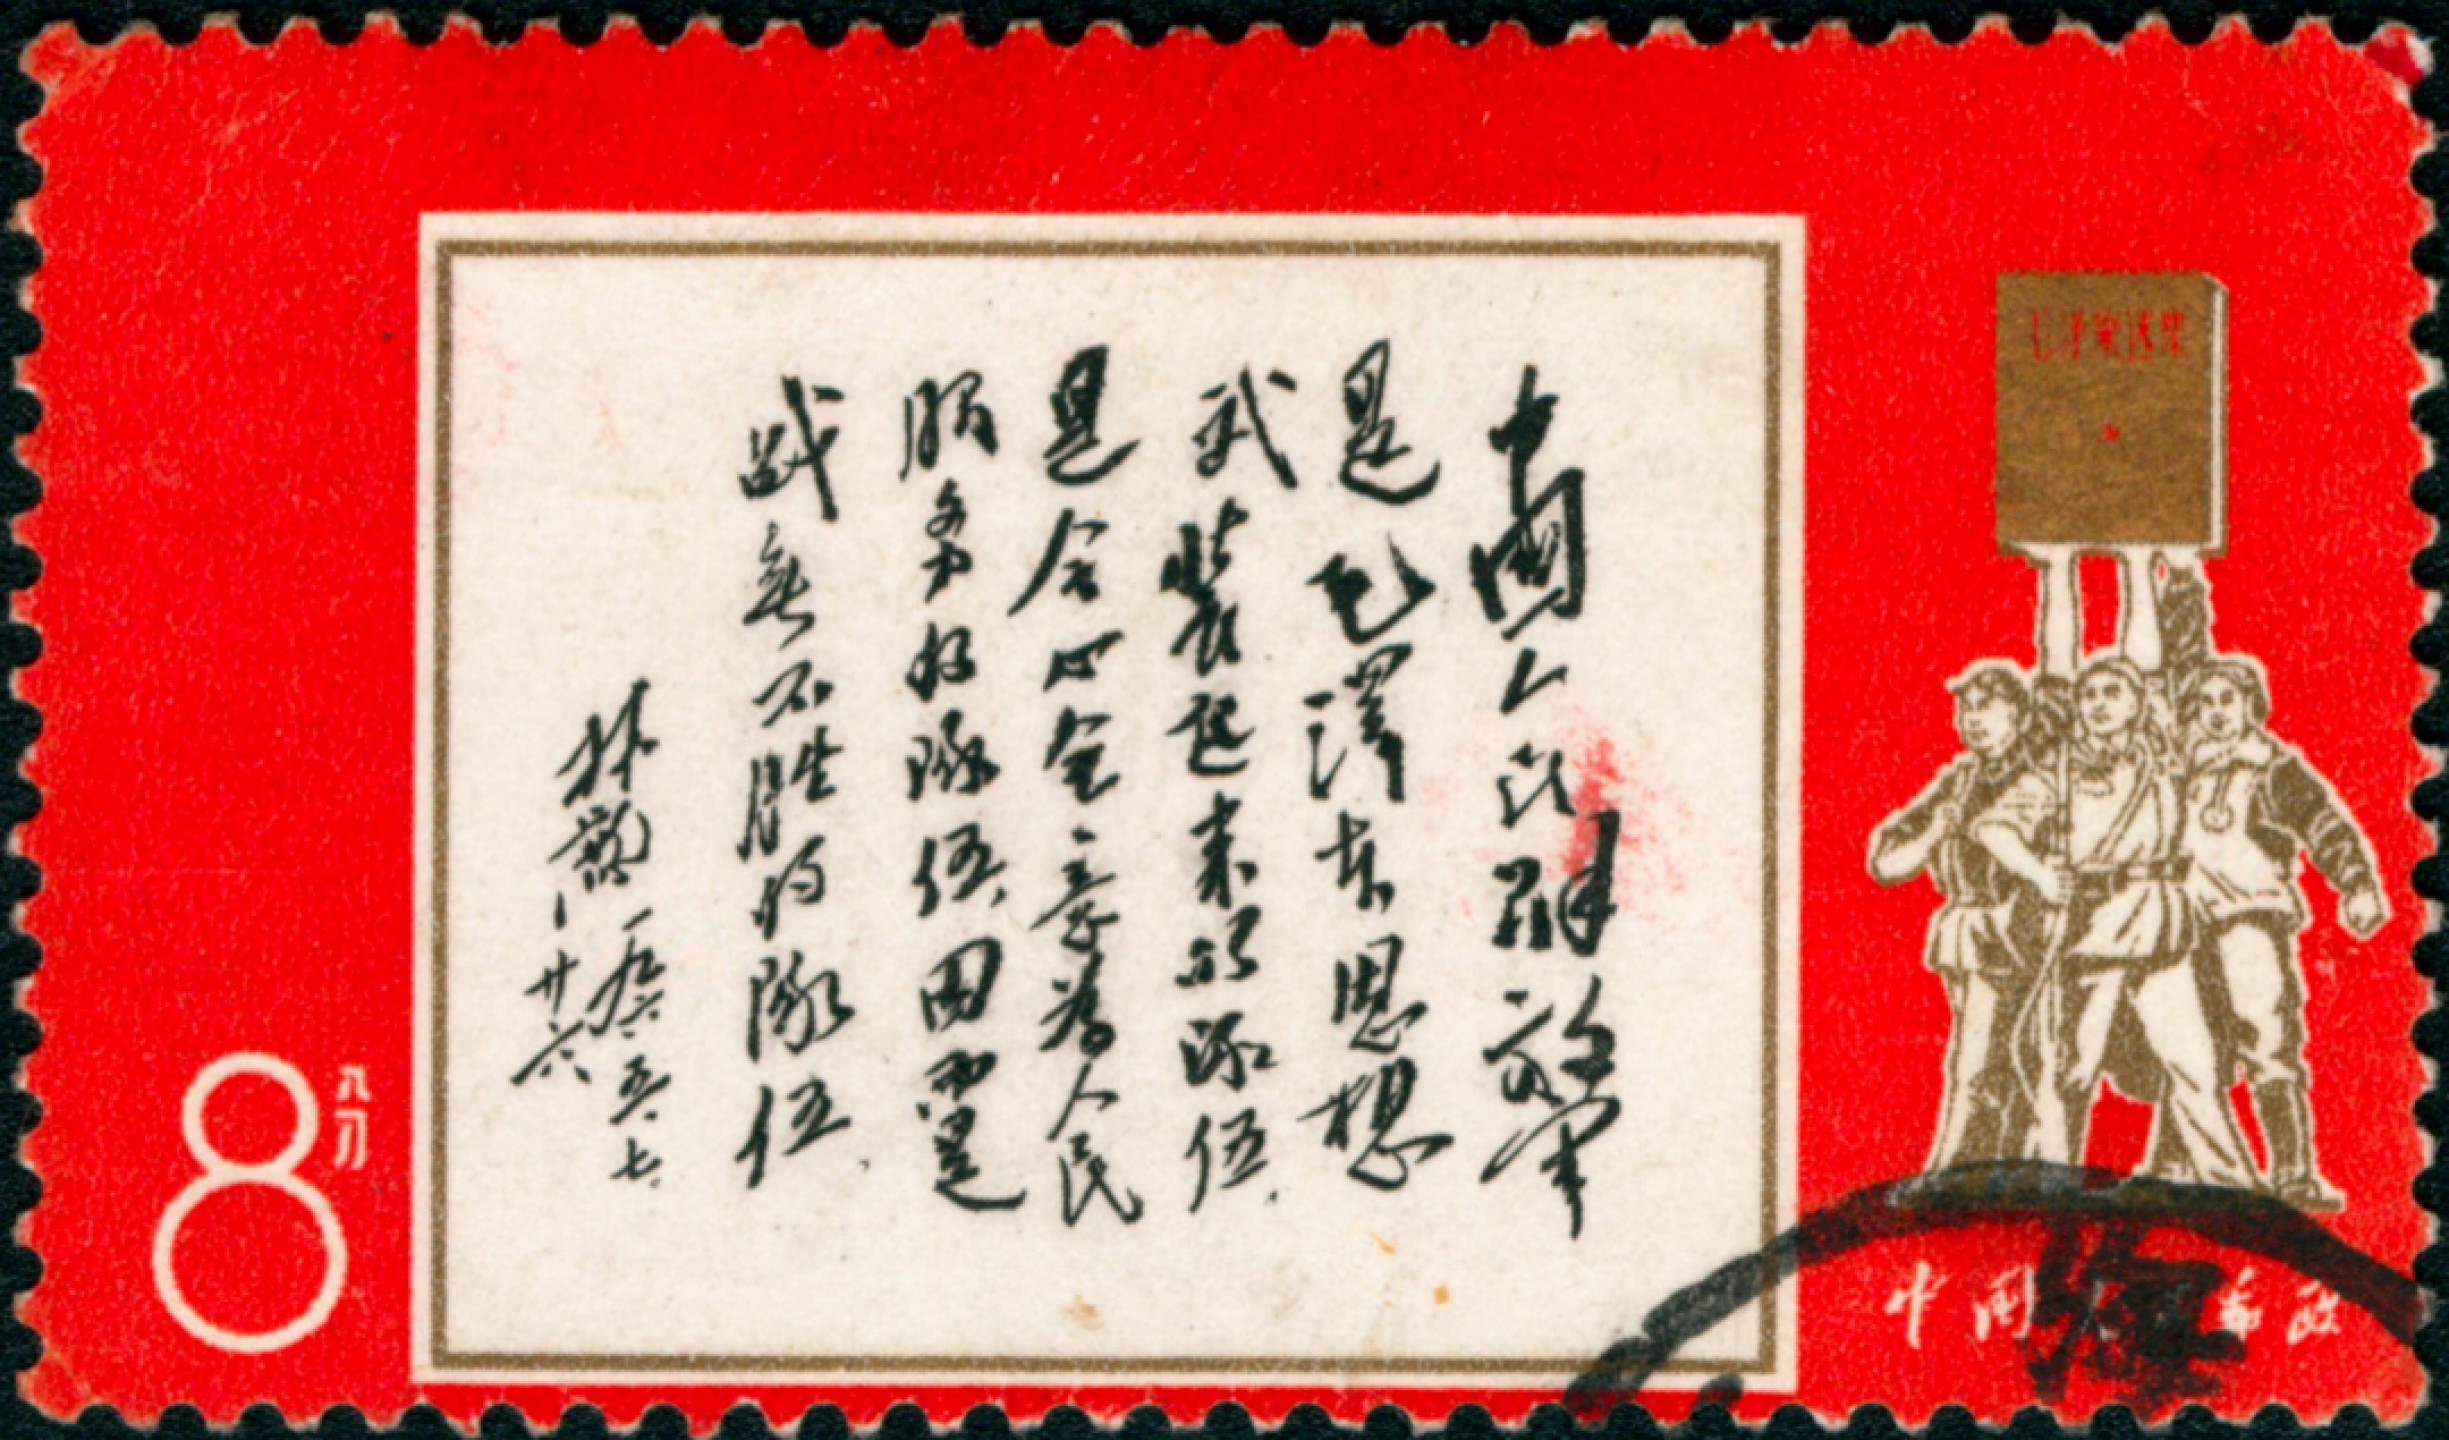 中國人民解放军
是毛澤东思想
武裝起来的队伍，
是全心全意为人民
服务的队伍，因而是
战無不胜的队伍.
林彪 一九六五.七.
廿六
毛泽东选集
8 八分
中国 邮政